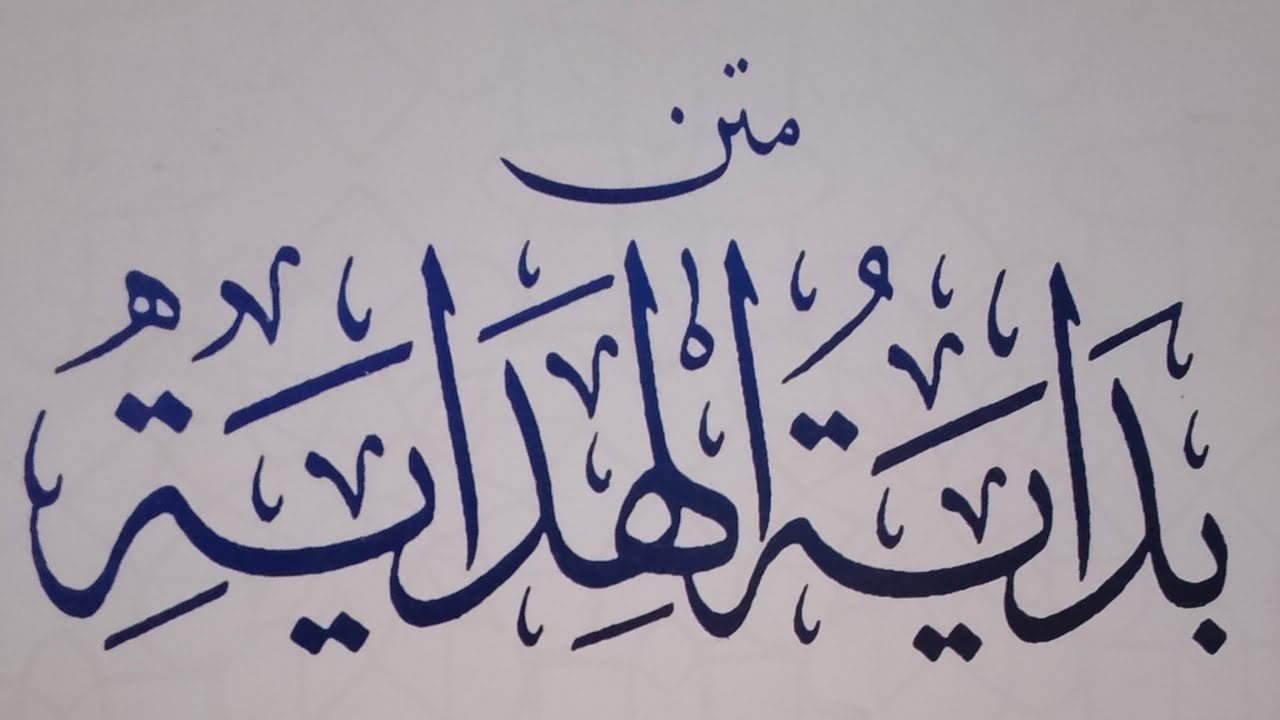 متن
بِدَايَةُ الْهِدَايَةِ